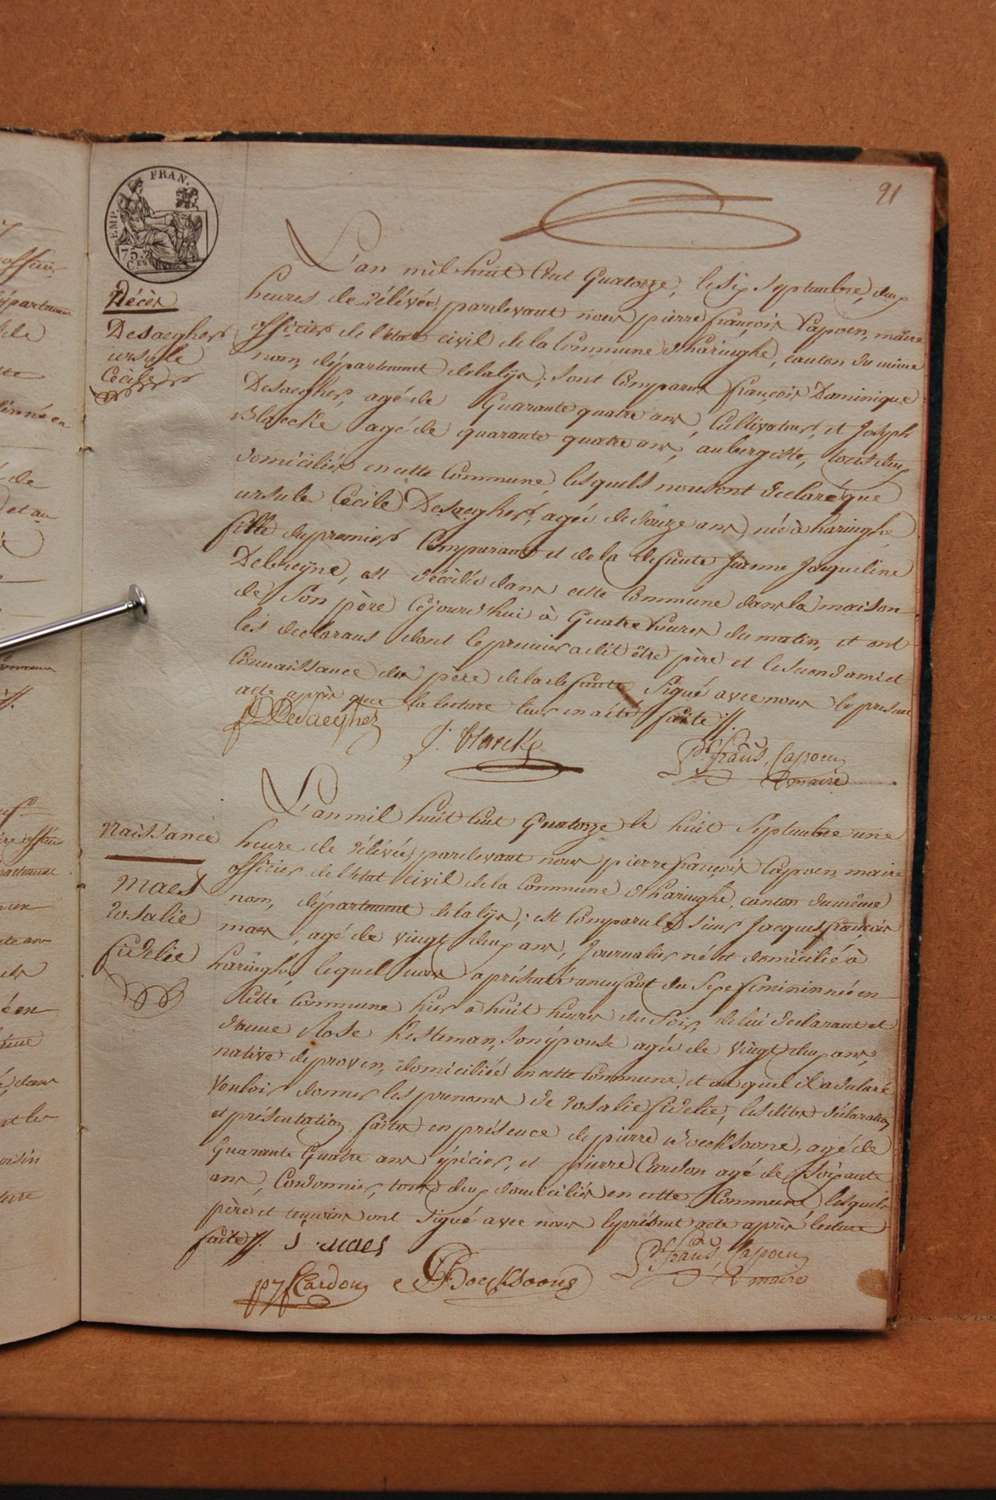 91
EMP. FRAN.
75 Ces
Décès
Desaegher
ursule
Cécile
L'an mil huit Cent Quatorze, le six Septembre, deux
heures de rélévée, pardevant nous pierre françois Capoen, maire
officier de l'état civil de la Commune d'haringhe, canton du même
nom, département de la lijs; sont Comparus françois Dominique
Desaegher, agé de Quarante quatre ans, Cultivateur, et Joseph
Blaecke agé de quarante quatre ans, aubergiste, tous deux
domiciliés en cette Commune, lesquels nous ont déclaré que
ursule Cécile Desaegher, agée de douze ans, née à haringhe
fille du premier Comparant et de la defunte Jeanne Jacqueline
Debreyne, est décédée dans cette Commune dans la maison
de Son père Cejourd'hui à Quatre heures du matin, et ont
les déclarans dont le premier a dit être père et le second ami et
Connaissance du père de la defunte Signé avec nous le présent
acte après que la lecture leur en a été faite //.
fD Desaegher
J. Blaecke
Pr. frans. Capoen
maire
Naissance
Maes
rosalie
fidelie
L'an mil huit Cent Quatorze le huit Septembre une
heure de rélévée, pardevant nous pierre françois Capoen, maire
officier de l'état civil de la Commune d'haringhe, canton du même
nom, département de la lijs; est Comparu le Sieur Jacques françois
maes, agé de vingt deux ans, Journalier né et domicilié à
haringhe lequel nous a présenté un enfant du Sexe féminin né en
cette Commune hier à huit heures du Soir, de lui déclarant et
d'anne Rose Kesteman, Son épouse agée de vingt deux ans,
native de proven, domiciliée en cette Commune, et auquel il a déclaré
vouloir donner les prénoms de rosalie fidelie, les dites déclaration
et présentation faites en présence de pierre d'boecksoone, agé de
Quarante Quatre ans épicier, et pierre Cardon agé de Soixante
ans, Cordonnier, tous deux domiciliés en cette Commune, lesquels
père et temoins ont Signé avec nous le présent acte après lecture
faite //. J maes
Cardon
Boecksoone
Pr. frans. Capoen
maire